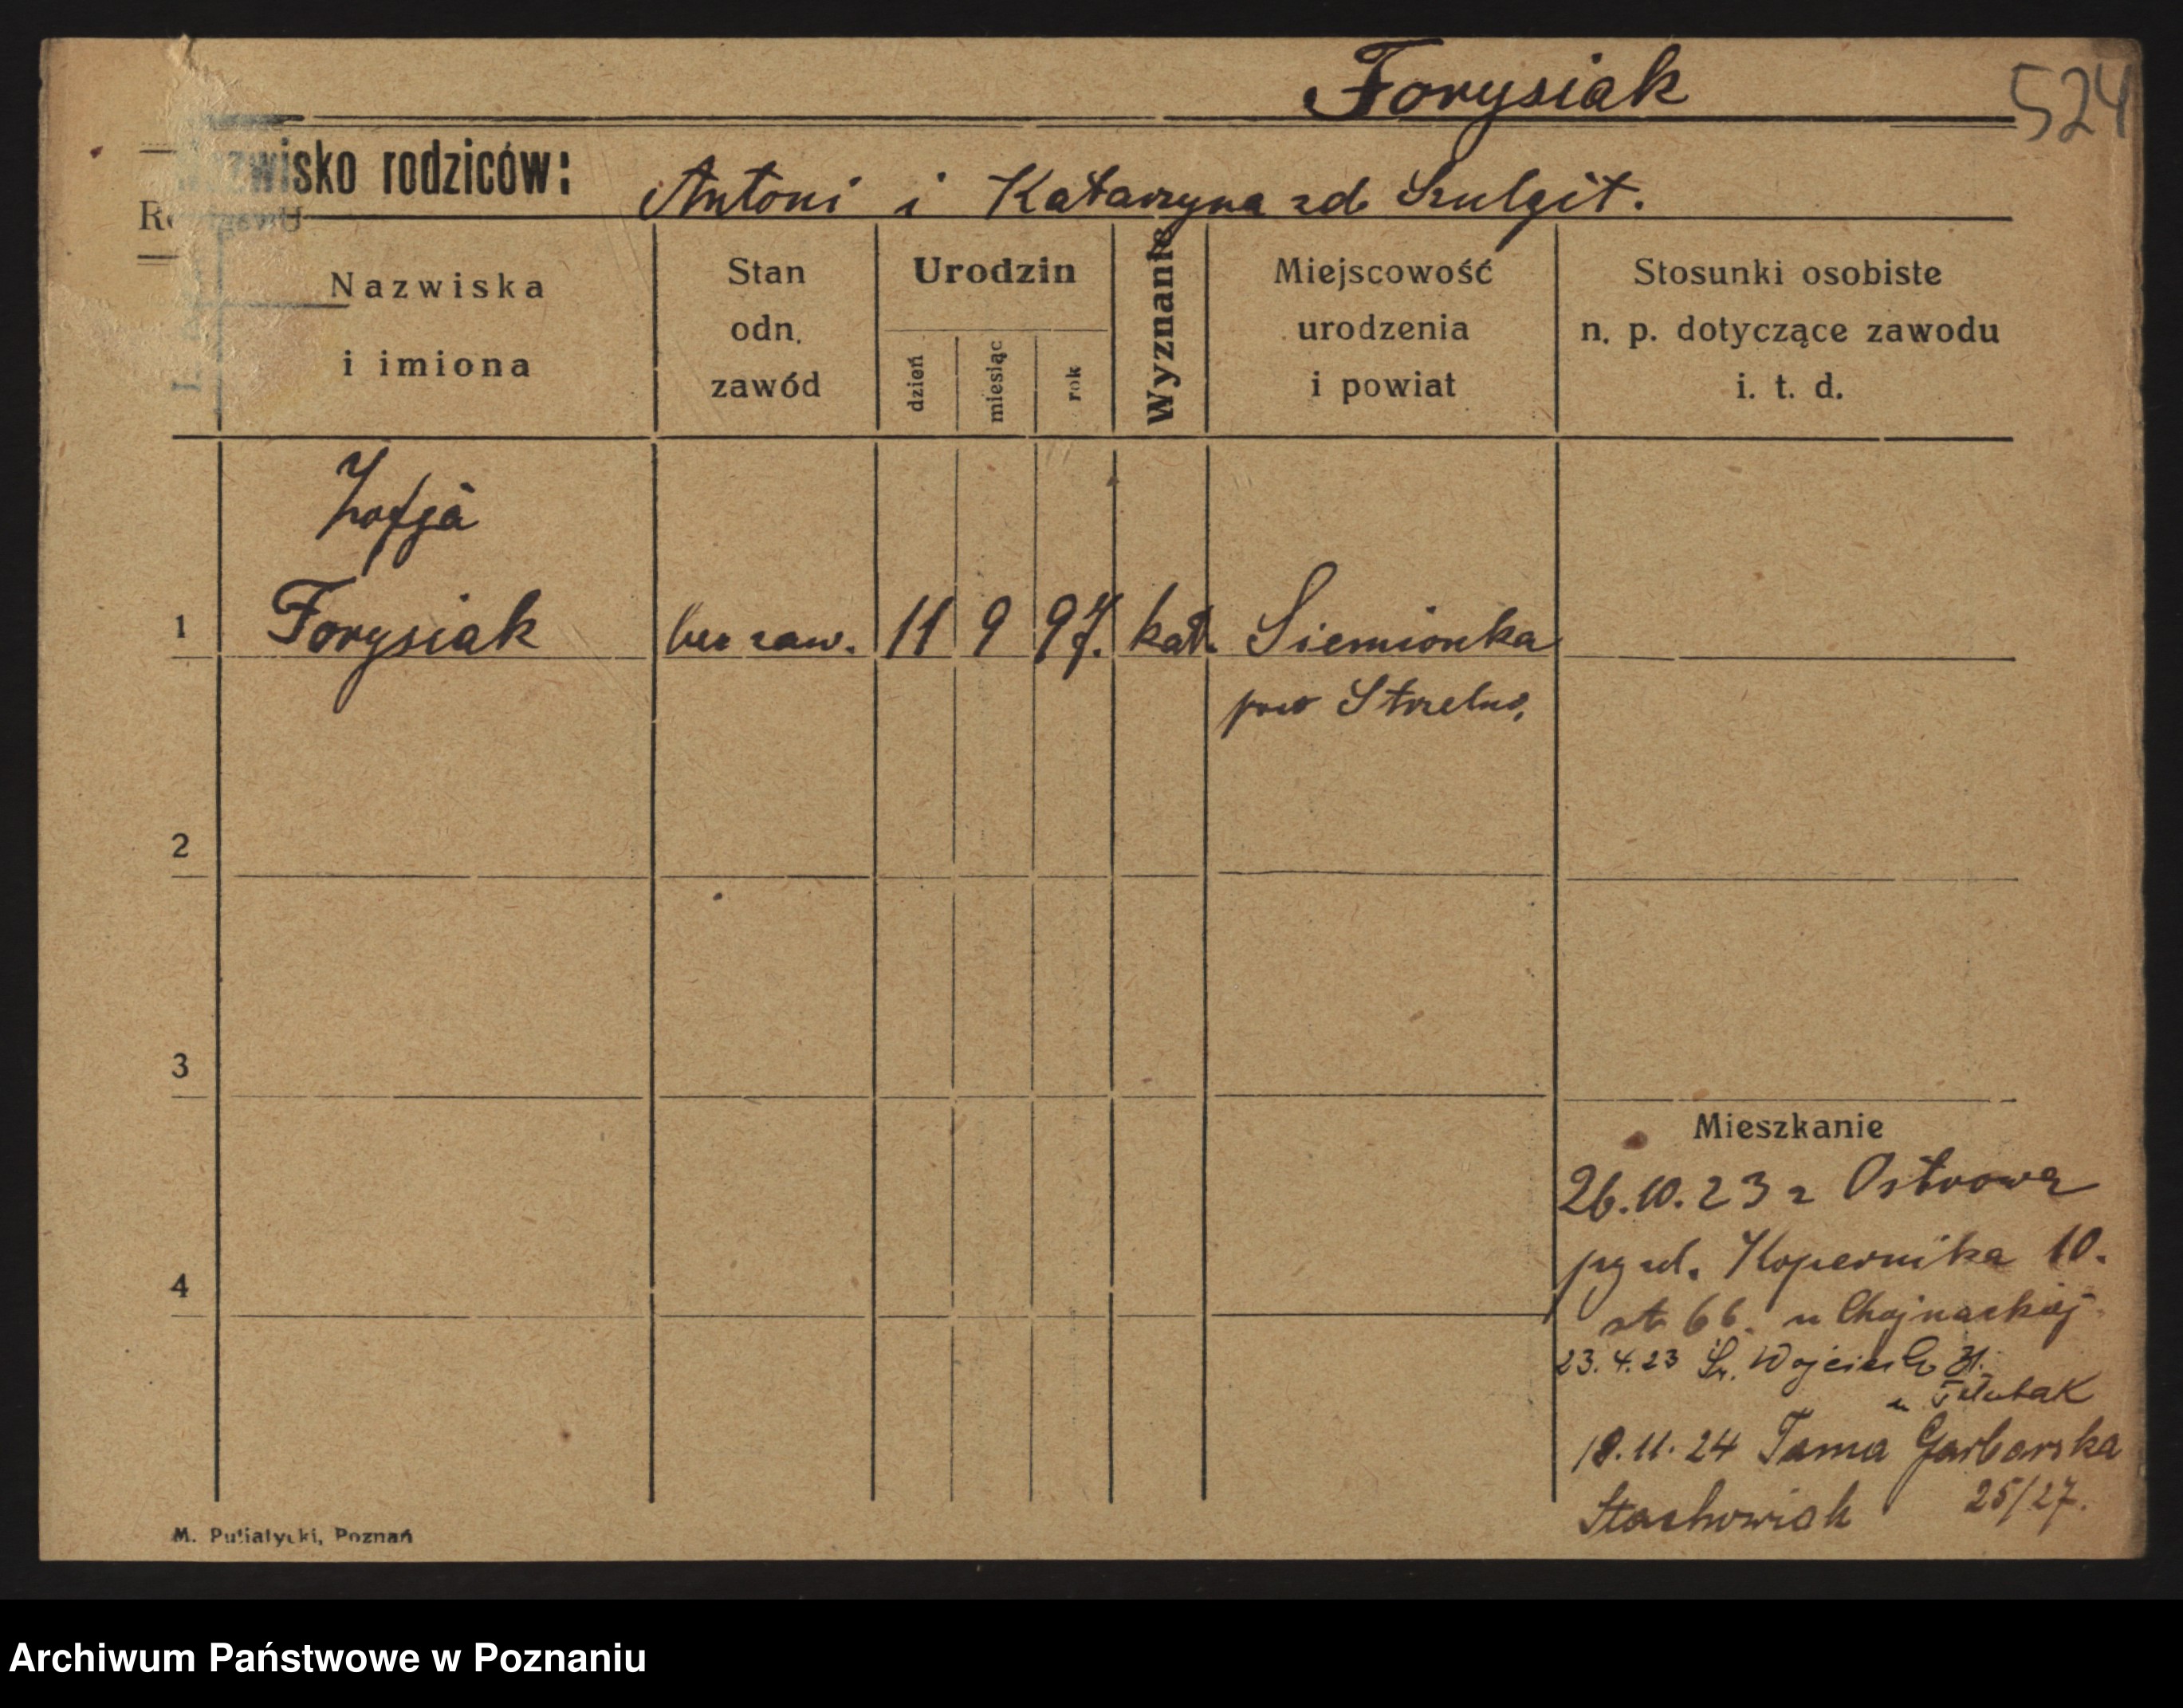 Forysiak
524
Nazwisko rodziców: Antoni i Katarzyna zd Szulgit.
Nazwiska i imiona
Stan odn. zawód
Urodzin
dzień
miesiąc
rok
Wyznanie
Miejscowość urodzenia i powiat
Stosunki osobiste n. p. dotyczące zawodu i. t. d.
Zofja
1 Forysiak bez zaw. 11 9 97. kat. Siemionka
pow Strelno,
2
3
Mieszkanie
26.10.23 z Ostrowa
4
Kopernika 10.
u Chojnackiej
23.4.23 Św. Wojciech 31.
u
18.11.24 Tama Garbarska
Stachowiak 25/27.
M. Putiatycki, Poznań
Archiwum Państwowe w Poznaniu